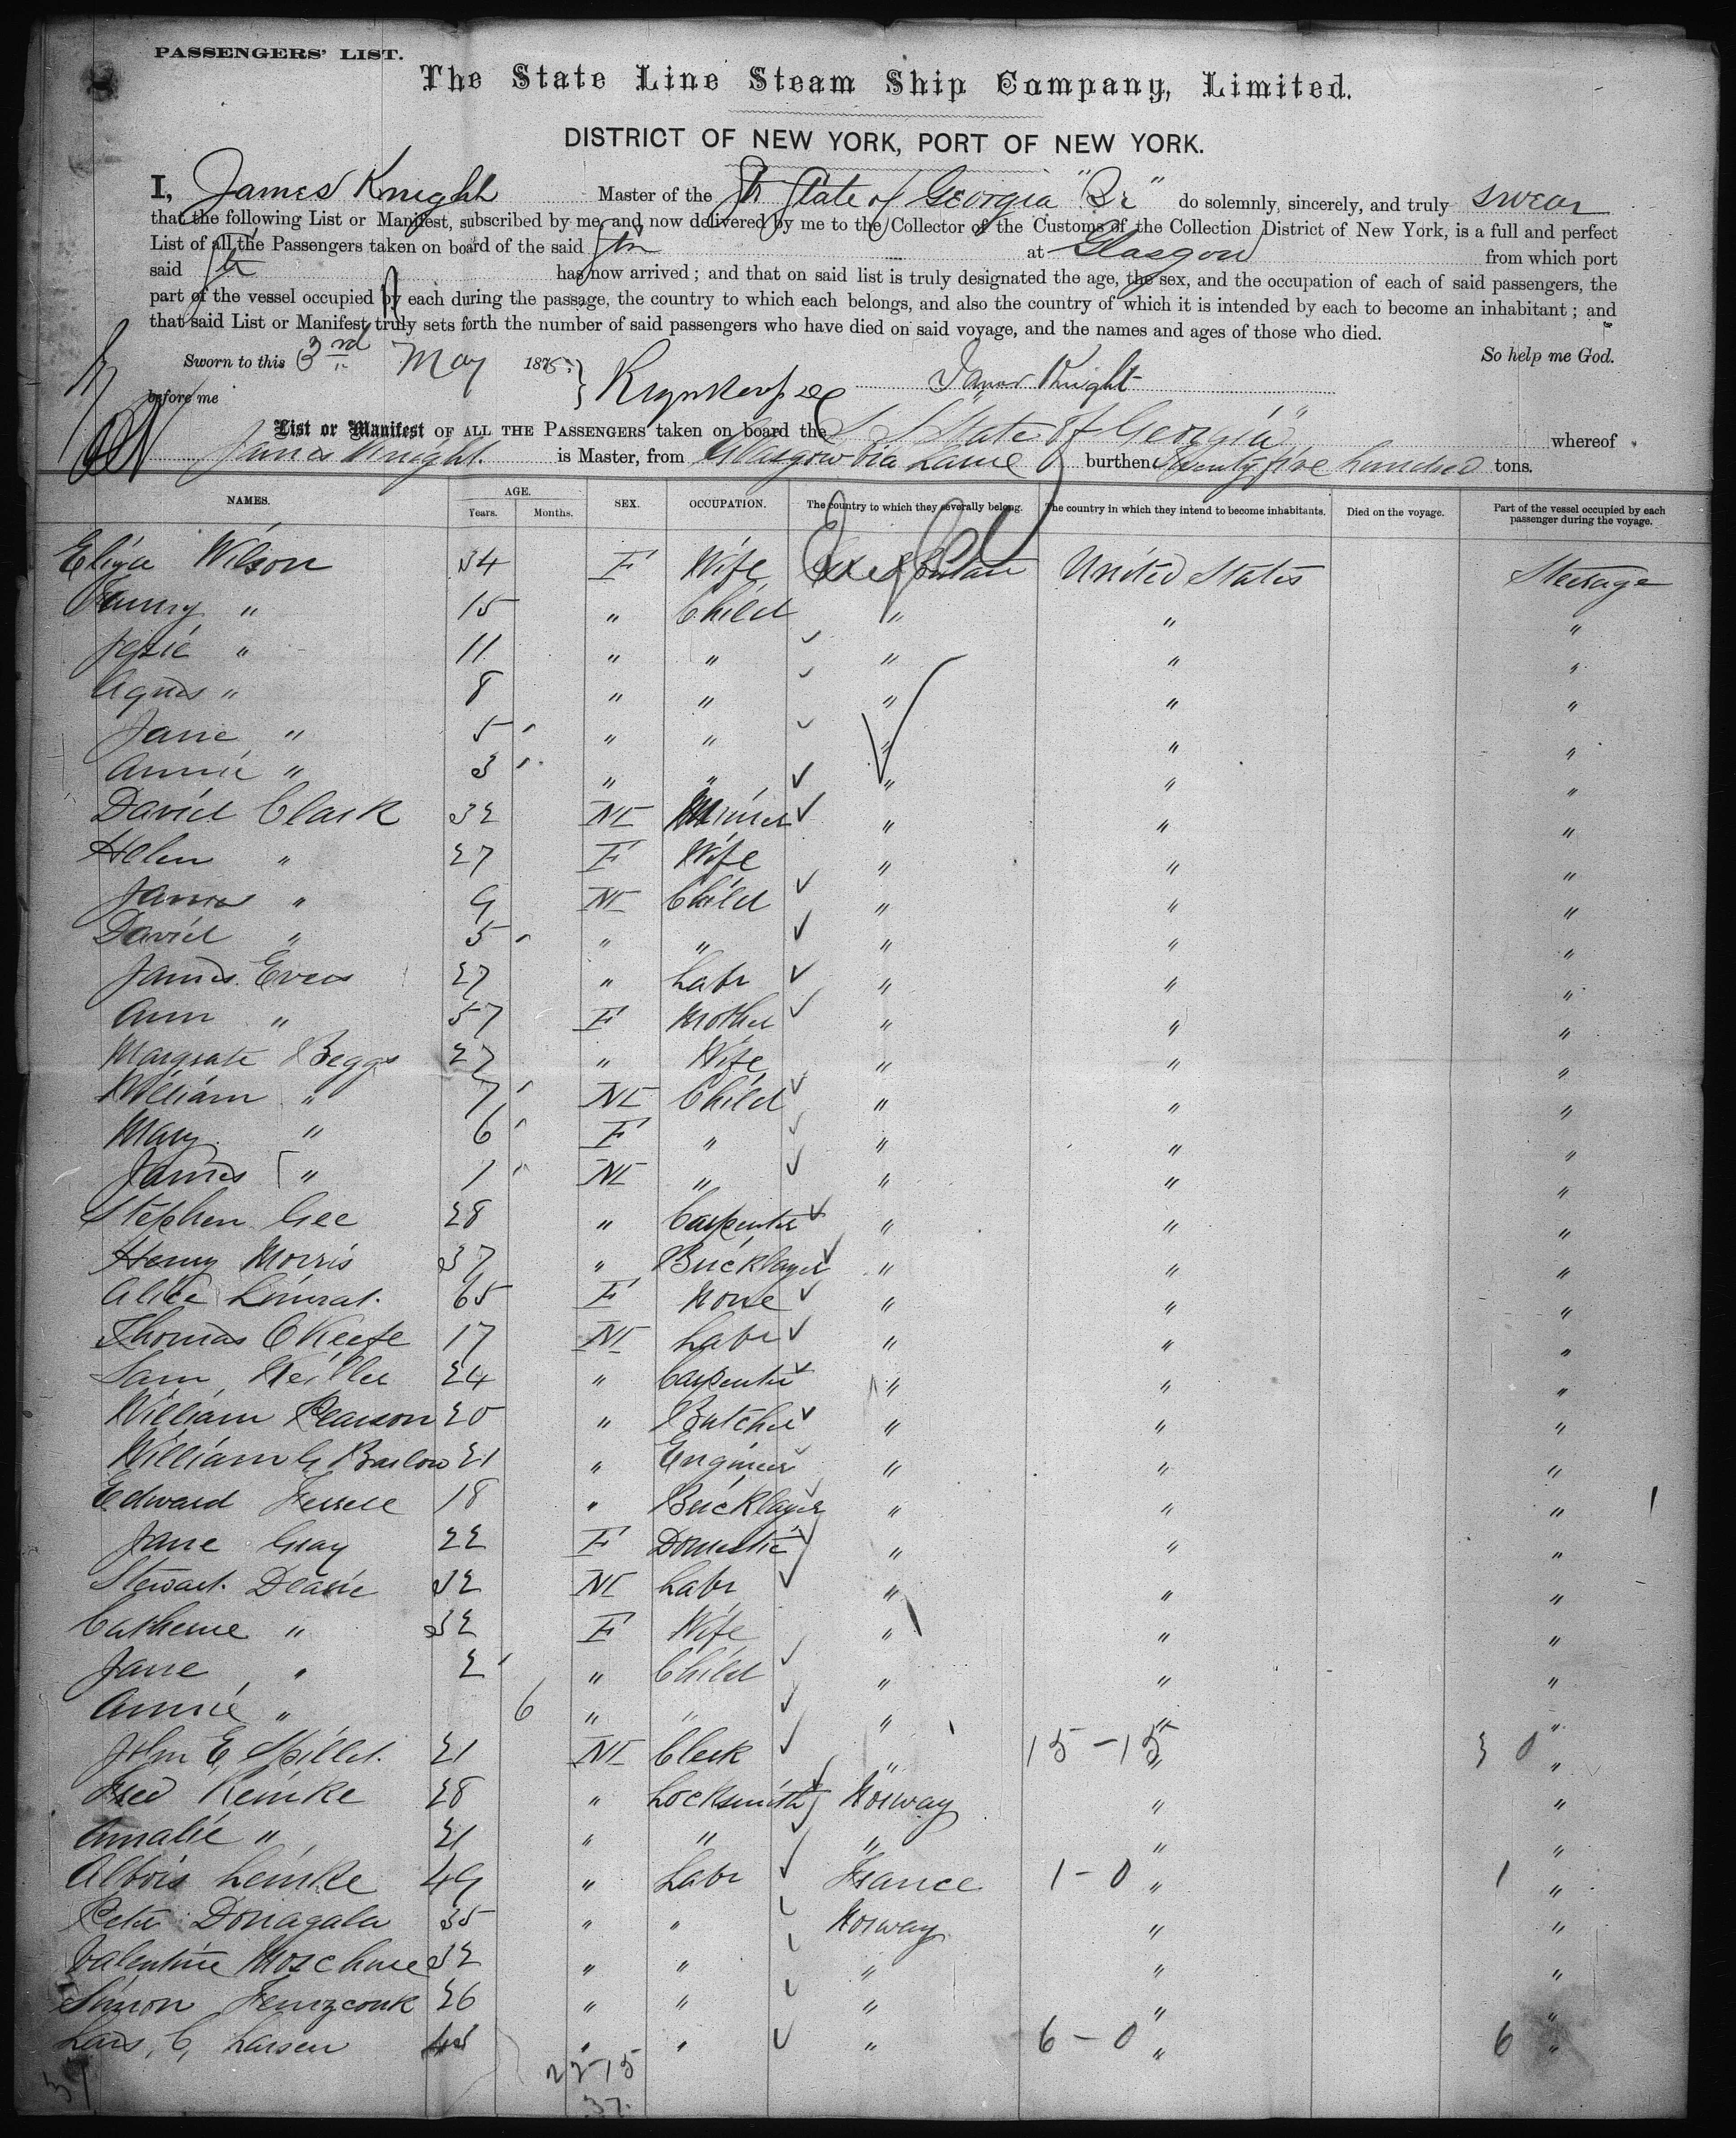 PASSENGERS' LIST.
The State Line Steam Ship Company, Limited.
DISTRICT OF NEW YORK, PORT OF NEW YORK.
I, James Knight Master of the Str State of Georgia "Br" do solemnly, sincerely, and truly swear
that the following List or Manifest, subscribed by me, and now delivered by me to the Collector of the Customs of the Collection District of New York, is a full and perfect
List of all the Passengers taken on board of the said Str at Glasgow from which port
said Str has now arrived; and that on said list is truly designated the age, the sex, and the occupation of each of said passengers, the
part of the vessel occupied by each during the passage, the country to which each belongs, and also the country of which it is intended by each to become an inhabitant; and
that said List or Manifest truly sets forth the number of said passengers who have died on said voyage, and the names and ages of those who died.
So help me God.
Sworn to this 3rd May 1875. James Knight
before me
List or Manifest OF ALL THE PASSENGERS taken on board the S. S. "State of Georgia" whereof
James Knight. is Master, from Glasgow via Larne burthen Twenty five hundred tons.
NAMES. AGE. Years. Months. SEX. OCCUPATION. The country to which they severally belong. The country in which they intend to become inhabitants. Died on the voyage. Part of the vessel occupied by each passenger during the voyage.
Eliza Wilson 34 F Wife United States Steerage
Fanny " 15 " Child " " "
Jessie " 11 " " " " "
Agnes " 8 " " " " "
Jane " 5 " " " " "
Annie " 3 " " " " "
David Clark 32 M Miner " " "
Helen " 27 F Wife " " "
James " 9 M Child " " "
David " 5 " " " " "
James 27 " Labr " " "
Ann " 57 F Mother " " "
Margrate Beggs 27 " Wife " " "
William " 7 M Child " " "
Mary " 6 F " " " "
James " 1 M " " " "
Stephen Gee 28 " Carpenter " " "
Henry Morris 37 " Bricklayer " " "
Alice 65 F None " " "
Thomas O'Keefe 17 M Labr " " "
Sam 24 " Carpenter " " "
William Pearson 20 " Butcher " " "
William G Barlow 21 " Engineer " " "
Edward 18 " Bricklayer " " "
Jane Gray 22 F Domestic " " "
Stewart 32 M Labr " " "
Catherine " 32 F Wife " " "
Jane " 2 " Child " " "
Annie " 6 " " " " "
John E. 21 M Clerk " 15-15 " 30 "
Fred Reinke 28 " Locksmith Norway " "
Amalie " 21 " " " " "
Leinke 49 " Labr France 1-0 " 1 "
Peter 35 " " Norway " "
Valentine 32 " " " " "
Simon 26 " " " " "
Lars, C, Larsen " " " 6-0 " 6 "
22-15
37.